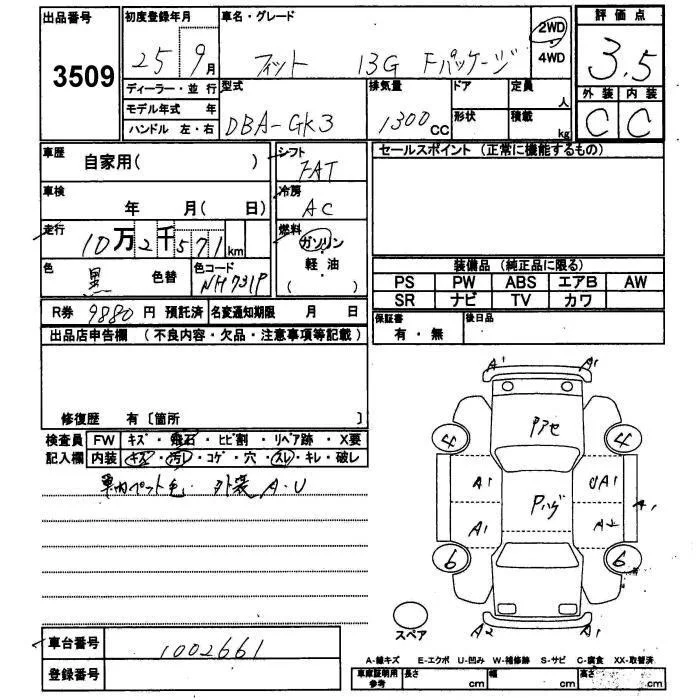 出品番号 初度登録年月 車名・グレード 評価点
3509 25 9月 フィット 13G Fパッケージ 2WD 4WD 3.5
ディーラー・並行 型式 排気量 ドア 定員 人 外装 内装
モデル年式 年 DBA-GK3 1300CC 形状 積載 kg C C
ハンドル 左・右
車歴 自家用( ) シフト FAT セールスポイント (正常に機能するもの)
車検 年 月( 日) 冷房 AC
走行 10万2千571km 燃料 ガソリン
軽・油
( )
色 黒 色替 色コード NH731P
装備品 (純正品に限る)
PS PW ABS エアB AW
SR ナビ TV カワ
R券 9880円 預託済 名変通知期限 月 日 保証書 有・無 後日品
出品店申告欄 (不良内容・欠品・注意事項等記載)
修復歴 有〔箇所 〕
検査員 FW キズ・飛石・ヒビ割・リペア跡・X要
記入欄 内装 キズ・汚レ・コゲ・穴・スレ・キレ・破レ
車内ペット毛. 外装 A.U
A1 A1
Pアセ
4 4
A1 UA1
Pハゲ A1
A1 A2
6 6
A2 A1
スペア
車台番号 1002661
登録番号
A-線キズ E-エクボ U-凹み W-補修跡 S-サビ C-腐食 XX-取替済
車庫証明用参考 長さ cm 幅 cm 高さ cm